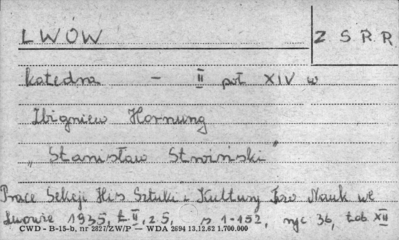 LWÓW
Z S.R.R
katedra – II poł XIV w
Zbigniew Hornung
„Stanisław Stroiński"
Prace Sekcji His Sztuki i Kultury Tow Nauk we
Lwowie 1935, t. II, z. 5, s 1-152, ryc 36, tab XII
CWD - B-15-b, nr 2827/ZW/P — WDA 2694 13.12.62 1.700.000